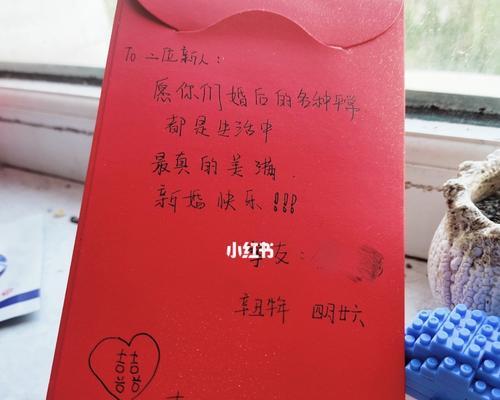 To 二位新人：
愿你们婚后的各种平常
都是生活中
最真的美满.
新婚快乐!!!
小红书
友：
辛丑牛年 四月廿六
囍